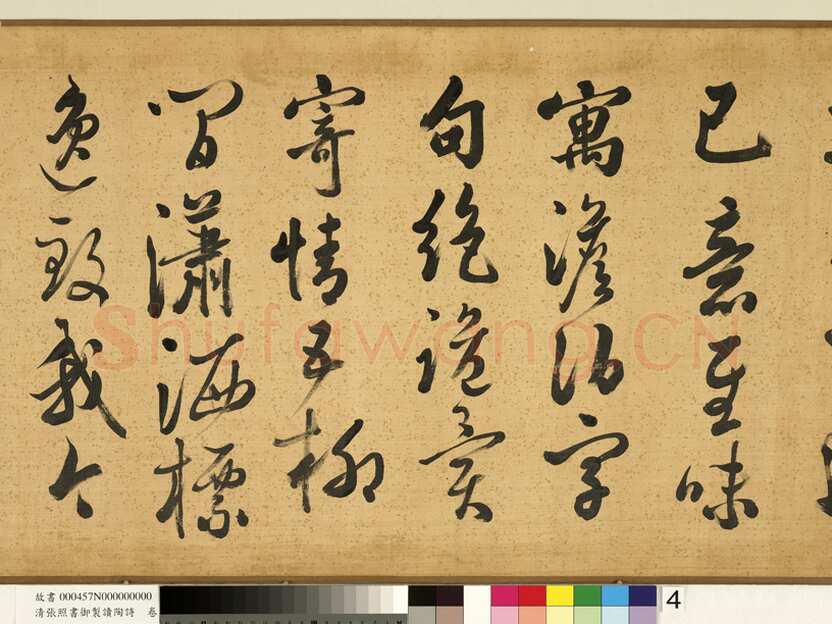 己意至味
寓澹泊字
句絕詭異
寄情五柳
間瀟洒標
逸致我今
Shufawang.CN
故書 000457N000000000
清張照書御製讀陶詩 卷
4